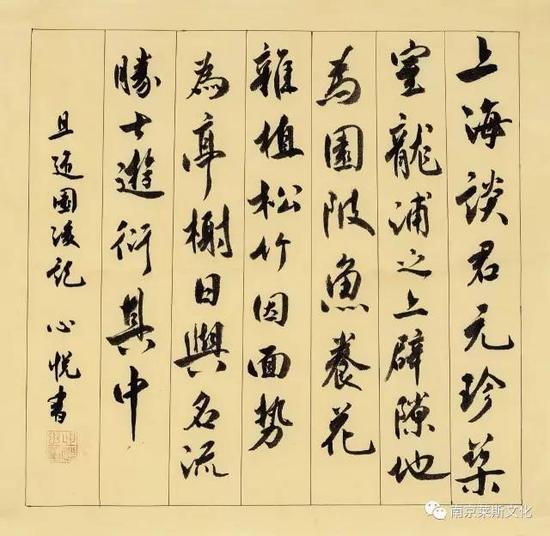 上海談君元珍築
室龍浦之上辟隙地
為園陂魚養花
雜植松竹因面勢
為亭榭日與名流
勝士遊衍其中
且適園後記 心悅書
南京莱斯文化